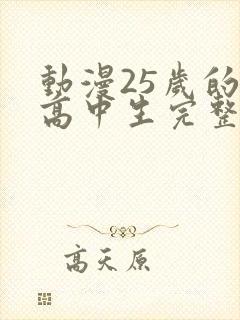 動漫25歲的
高中生完整
高天原